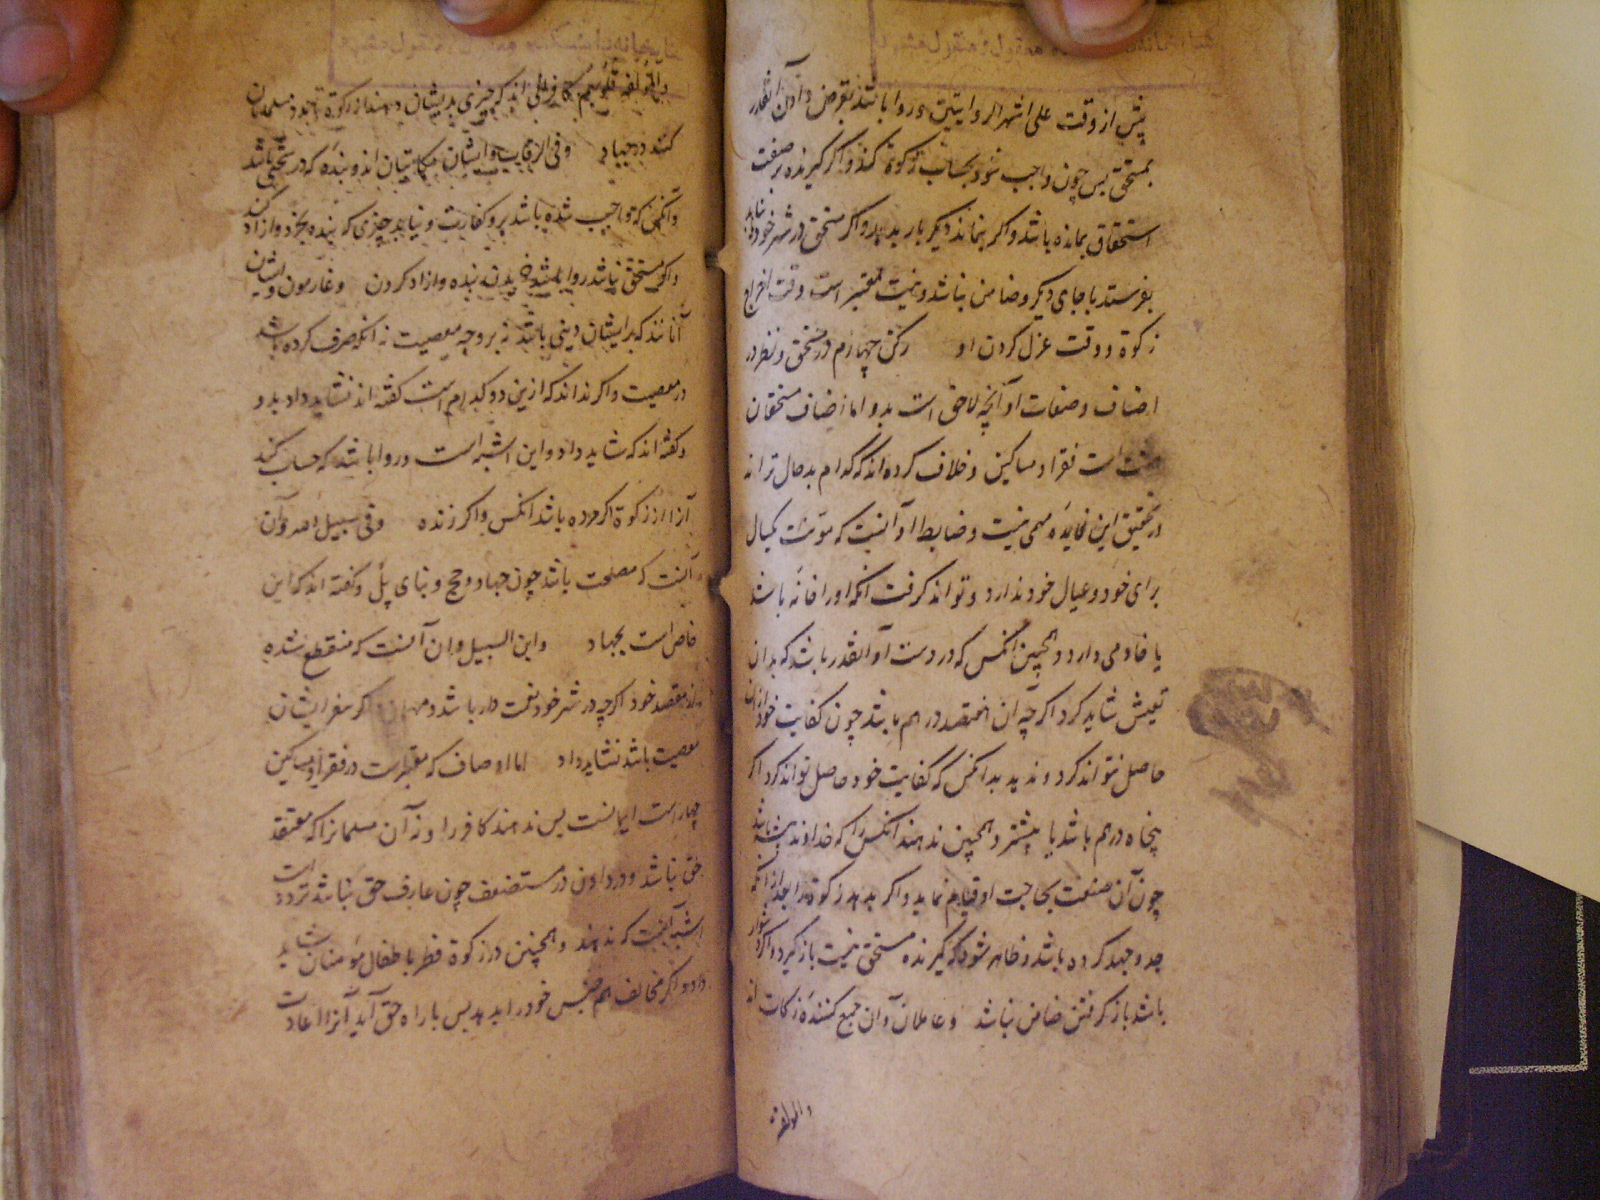 پیش از وقت علی اشهر الروایتین و روا باشد بقرض دادن آنقدر
بمستحق پس چون واجب شود بحساب زکوة کند و اگر گیرنده بر صفت
استحقاق بمانده باشد و اگر بنماند دیگر بار بدهد و اگر مستحق در شهر خود نیابد
بفرستد با جای دیگر و ضامن نباشد و نیت معتبر است وقت اخراج
زکوة و وقت عزل کردن او رکن چهارم در مستحق و نظر در
اصناف و صفات او و آنچه لاحق است بدو اما اصناف مستحقان
هشت است فقرا و مساکین و خلاف کرده اند که کدام بدحال تراند
در تحقیق این فایده مهمی نیست و ضابط او آنست که مؤنت یکسال
برای خود و عیال خود ندارد و تواند گرفت آنکه او را خانه باشد
یا خادمی دارد و همچنین آنکس که در دست او آنقدر باشد که بدان
تعیش شاید کرد اگر چه آن هفتصد درهم باشد چون کفایت خود از آن
حاصل نتواند کرد و ندهد بدانکس که کفایت خود حاصل تواند کرد اگر
پنجاه درهم باشد یا بیشتر و همچنین ندهند آنکس را که خداوند پیشه باشد
چون آن صنعت بحاجت او قیام نماید و اگر بدهد زکوة را بعد از آنکه
جد و جهد کرده باشد و ظاهر شود که گیرنده مستحق نیست باز گیرد و اگر دشوار
باشد باز گرفتن ضامن نباشد و عاملان و آن جمع کنندۀ زکات اند
والمؤلفة
والمؤلفة قلوبهم کافرانی اند که چیزی بدیشان دهند از زکوة تا مدد مسلمانان
کنند در جهاد وفی الرقاب و ایشان مکاتبان اند و بنده که در سختی باشد
و آنکس که واجب شده باشد برو کفارت و نیابد چیزی که بنده بخرد و آزاد کند
و اگر مستحق نباشد روا باشد خریدن بنده و آزاد کردن و غارمون و ایشان
آنانند که بر ایشان دینی باشد نه بر وجه معصیت نه آنکه صرف کرده باشد
در معصیت و اگر نداند که ازین دو کدام است گفته اند نشاید داد بدو
و گفته اند که شاید داد و این اشبه است و روا باشد که حساب کند
آنرا از زکوة اگر مرده باشد آنکس و اگر زنده وفی سبیل الله و آن
آنست که مصلحت باشد چون جهاد و حج و بنای پل و گفته اند که این
خاص است بجهاد وابن السبیل و آن آنست که منقطع شده
از مقصد خود اگر چه در شهر خود نعمت دار باشد و مهمان اگر سفر ایشان
معصیت باشد نشاید داد اما اوصاف که معتبرست در فقرا و مساکین
چهار است ایمانست پس ندهند کافر را و نه آن مسلمانرا که معتقد
حق نباشد و در دادن در مستضعف چون عارف حق نباشد تردد است
اشبه آنست که ندهند و همچنین در زکوة فطر با طفال مؤمنان شاید
داد و اگر مخالف هم جنس خود را بدهد پس با راه حق آید آنرا اعادت